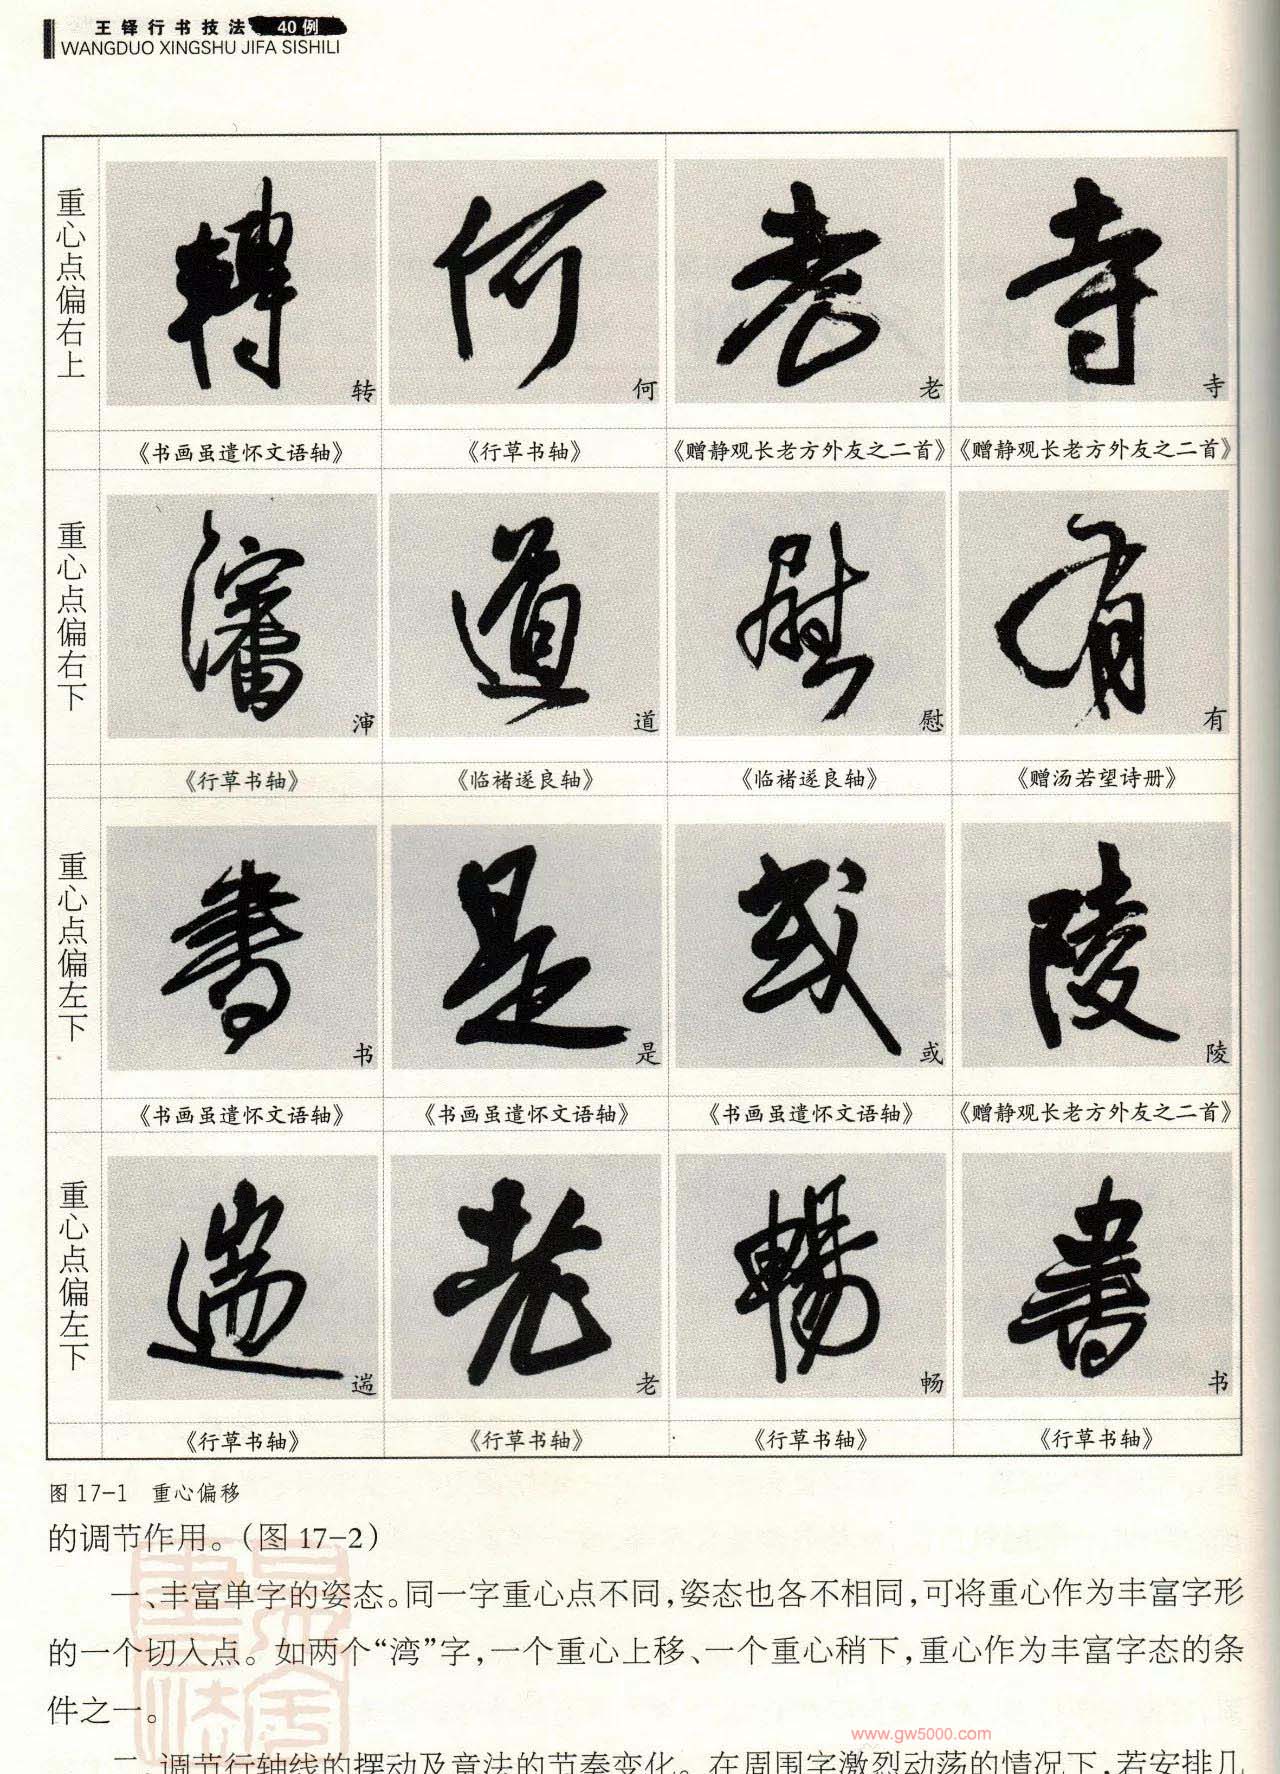 王铎行书技法 40例
WANGDUO XINGSHU JIFA SISHILI
重心点偏右上
转 何 老 寺
《书画虽遣怀文语轴》 《行草书轴》 《赠静观长老方外友之二首》 《赠静观长老方外友之二首》
重心点偏右下
渖 道 慰 有
《行草书轴》 《临褚遂良轴》 《临褚遂良轴》 《赠汤若望诗册》
重心点偏左下
书 是 或 陵
《书画虽遣怀文语轴》 《书画虽遣怀文语轴》 《书画虽遣怀文语轴》 《赠静观长老方外友之二首》
重心点偏左下
遄 老 畅 书
《行草书轴》 《行草书轴》 《行草书轴》 《行草书轴》
图 17-1 重心偏移
的调节作用。(图 17-2)
一、丰富单字的姿态。同一字重心点不同,姿态也各不相同,可将重心作为丰富字形
的一个切入点。如两个“湾”字,一个重心上移、一个重心稍下,重心作为丰富字态的条
件之一。
www.gw5000.com
二、调节行轴线的摆动及章法的节奏变化。在周围字激烈动荡的情况下,若安排几